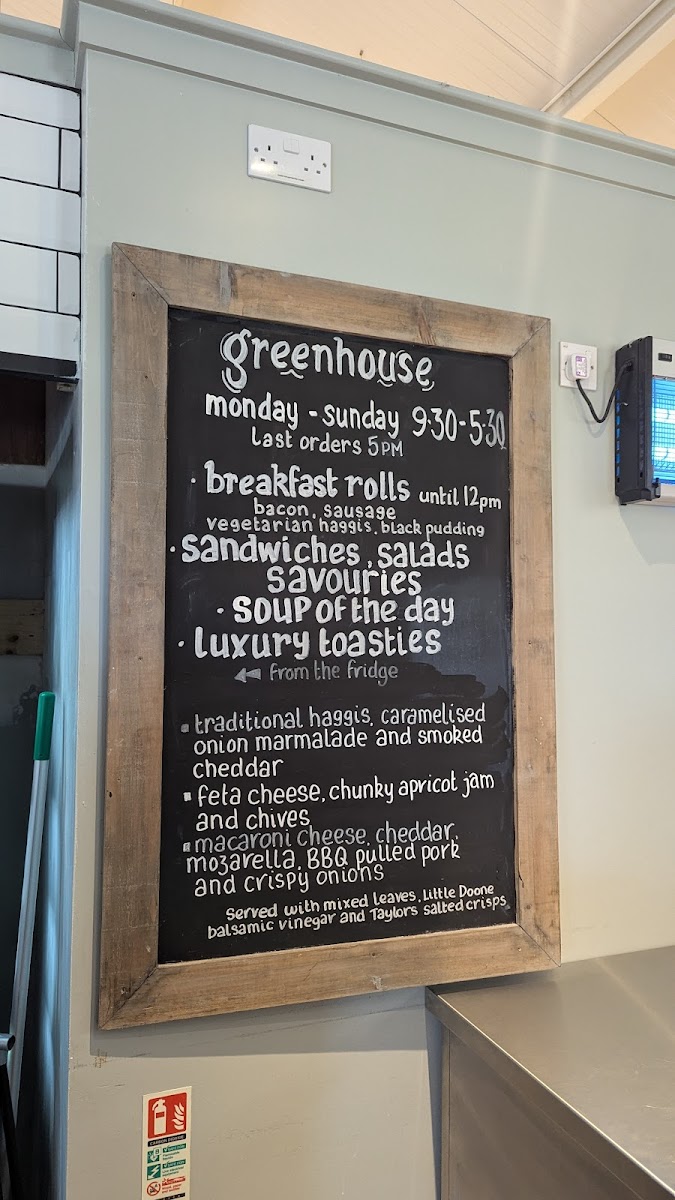 greenhouse
monday - sunday 9.30-5.30
Last orders 5PM
· breakfast rolls until 12pm
bacon, sausage
vegetarian haggis, black pudding
· sandwiches, salads
savouries
· soup of the day
· luxury toasties
from the fridge
▪ traditional haggis, caramelised
onion marmalade and smoked
cheddar
▪ feta cheese, chunky apricot jam
and chives
▪ macaroni cheese, cheddar,
mozarella, BBQ pulled pork
and crispy onions
Served with mixed leaves, Little Doone
balsamic vinegar and Taylors salted crisps